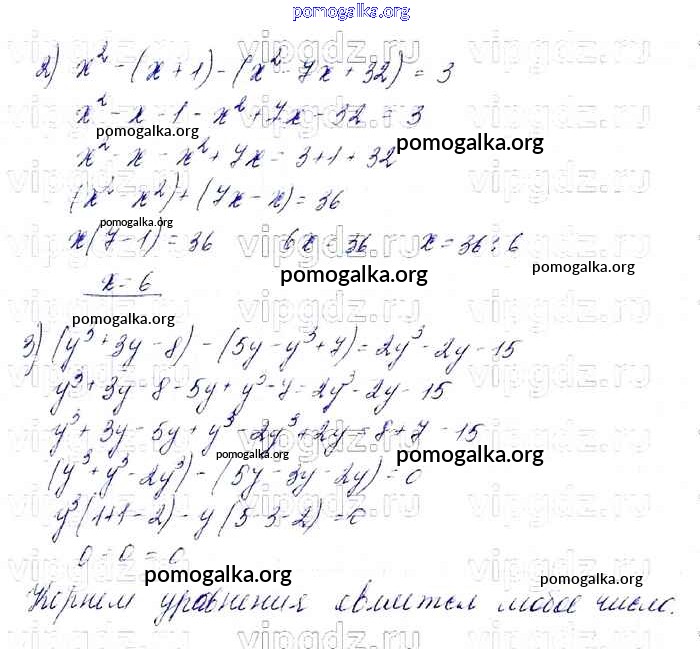 pomogalka.org
2) x² - (x + 1) - (x² - 7x + 32) = 3
x² - x - 1 - x² + 7x - 32 = 3
pomogalka.org
pomogalka.org
x² - x - x² + 7x = 3 + 1 + 32
(x² - x²) + (7x - x) = 36
pomogalka.org
x(7 - 1) = 36 6x = 36 x = 36 : 6
pomogalka.org
pomogalka.org
x = 6
pomogalka.org
3) (y³ + 3y - 8) - (5y - y³ + 7) = 2y³ - 2y - 15
y³ + 3y - 8 - 5y + y³ - 7 = 2y³ - 2y - 15
y³ + 3y - 5y + y³ - 2y³ + 2y = 8 + 7 - 15
pomogalka.org
pomogalka.org
(y³ + y³ - 2y³) - (5y - 3y - 2y) = 0
y³(1+1-2) - y(5-3-2) = 0
0 - 0 = 0
pomogalka.org
pomogalka.org
Корнем уравнения является любое число.
pomogalka.org